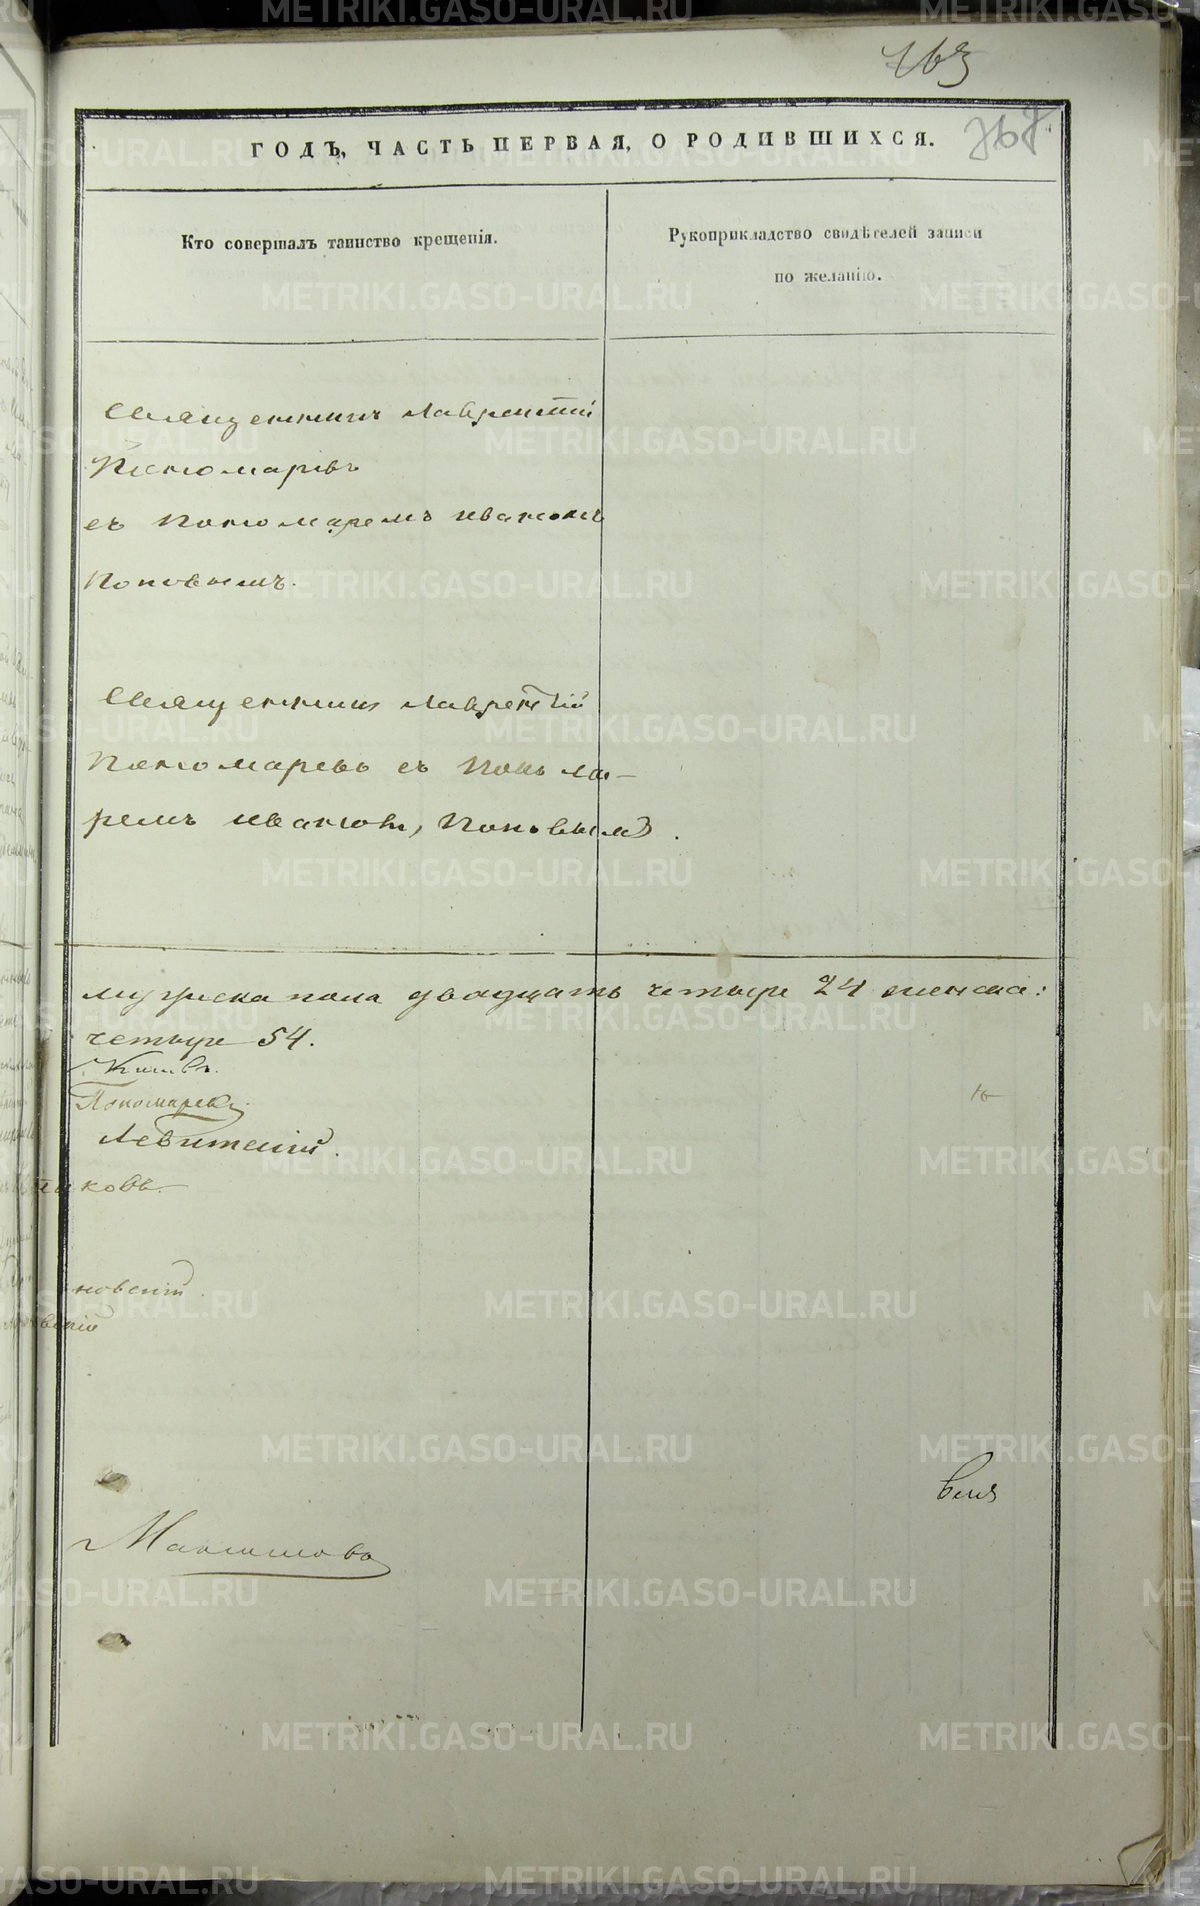 763
ГОДЪ, ЧАСТЬ ПЕРВАЯ, О РОДИВШИХСЯ.
Кто совершалъ таинство крещенія.
Рукоприкладство свидѣтелей записи
по желанію.
Священникъ Лаврентій
Пономаревъ
съ Пономаремъ Иваномъ
Поповымъ.
Священникъ Лаврентій
Пономаревъ съ Поно ма-
ремъ Иваномъ Поповымъ.
мужеска пола двадцать четыре 24 женска:
четыре 54.
Пономаревъ.
Левитскій.
ковъ.
новскій.
вскій
Максимовъ
METRIKI.GASO-URAL.RU